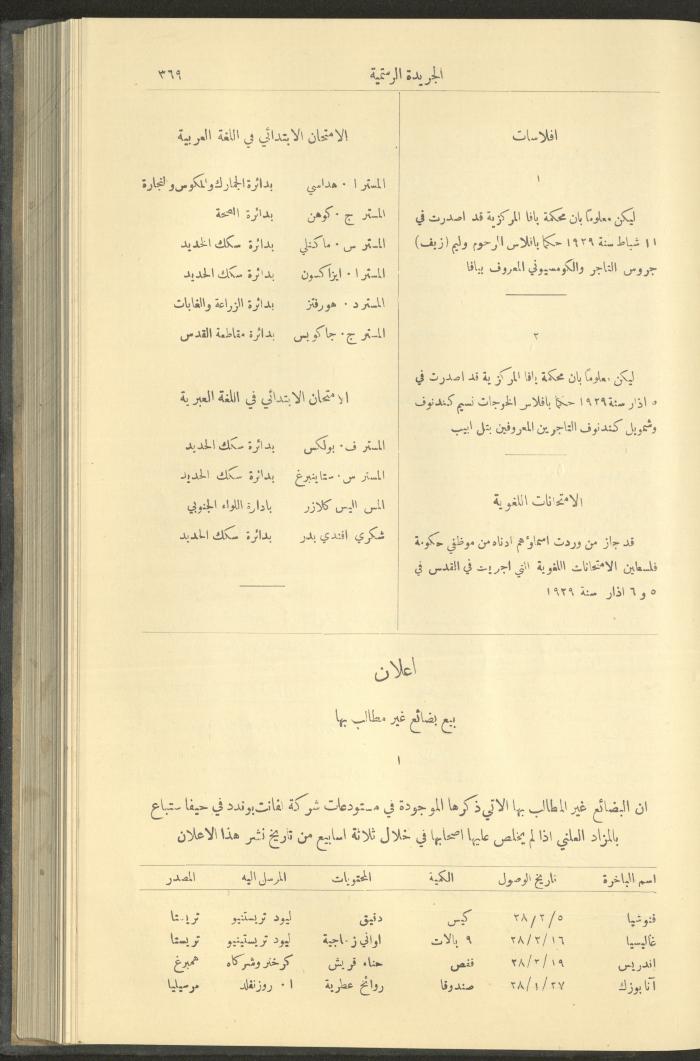 الجريدة الرسمية
٣٦٩
افلاسات
١
ليكن معلومًا بان محكمة يافا المركزية قد اصدرت في
١١ شباط سنة ١٩٢٩ حكمًا بافلاس الرحوم وليم (زيف)
جروس التاجر والكومسيوني المعروف بيافا
٢
ليكن معلومًا بان محكمة يافا المركزية قد اصدرت في
٥ اذار سنة ١٩٢٩ حكمًا بافلاس الخوجات نسيم كندنوف
وشمويل كندنوف التاجرين المعروفين بتل ابيب
الامتحانات اللغوية
قد جاز من وردت اسماؤهم ادناه من موظفي حكومة
فلسطين الامتحانات اللغوية التي اجريت في القدس في
٥ و ٦ اذار سنة ١٩٢٩
الامتحان الابتدائي في اللغة العربية
المستر ا ٠ هداسي بدائرة الجمارك والمكوس والتجارة
المستر ج ٠ كوهن بدائرة الصحة
المستر س ٠ ماكنلي بدائرة سكك الحديد
المستر ا ٠ ايزاكسون بدائرة سكك الحديد
المستر د ٠ هورفتز بدائرة الزراعة والغابات
المستر ج ٠ جاكوبس بدائرة مقاطعة القدس
الامتحان الابتدائي في اللغة العبرية
المستر ف ٠ بولكس بدائرة سكك الحديد
المستر س ٠ ستاينبرغ بدائرة سكك الحديد
المس اليس كلازر بادارة اللواء الجنوبي
شكري افندي بدر بدائرة سكك الحديد
اعلان
بيع بضائع غير مطالب بها
١
ان البضائع غير المطالب بها الاتي ذكرها الموجودة في مستودعات شركة لفانت بوندد في حيفا ستباع
بالمزاد العلني اذا لم يخلص عليها اصحابها في خلال ثلاثة اسابيع من تاريخ نشر هذا الاعلان
اسم الباخرة تاريخ الوصول الكمية المحتويات المرسل اليه المصدر
فنوشيا ٢٨/٢/٥ كيس دقيق ليود تريستنيو تريستا
غاليسيا ٢٨/٢/١٦ ٩ بالات اواني زجاجية ليود تريستينيو تريستا
اندريس ٢٨/٢/١٩ قفص حناء قريش كرخنر وشركاه همبرغ
آنا بوزك ٢٨/١/٢٧ صندوقا روائح عطرية ا ٠ روزنفلد مرسيليا